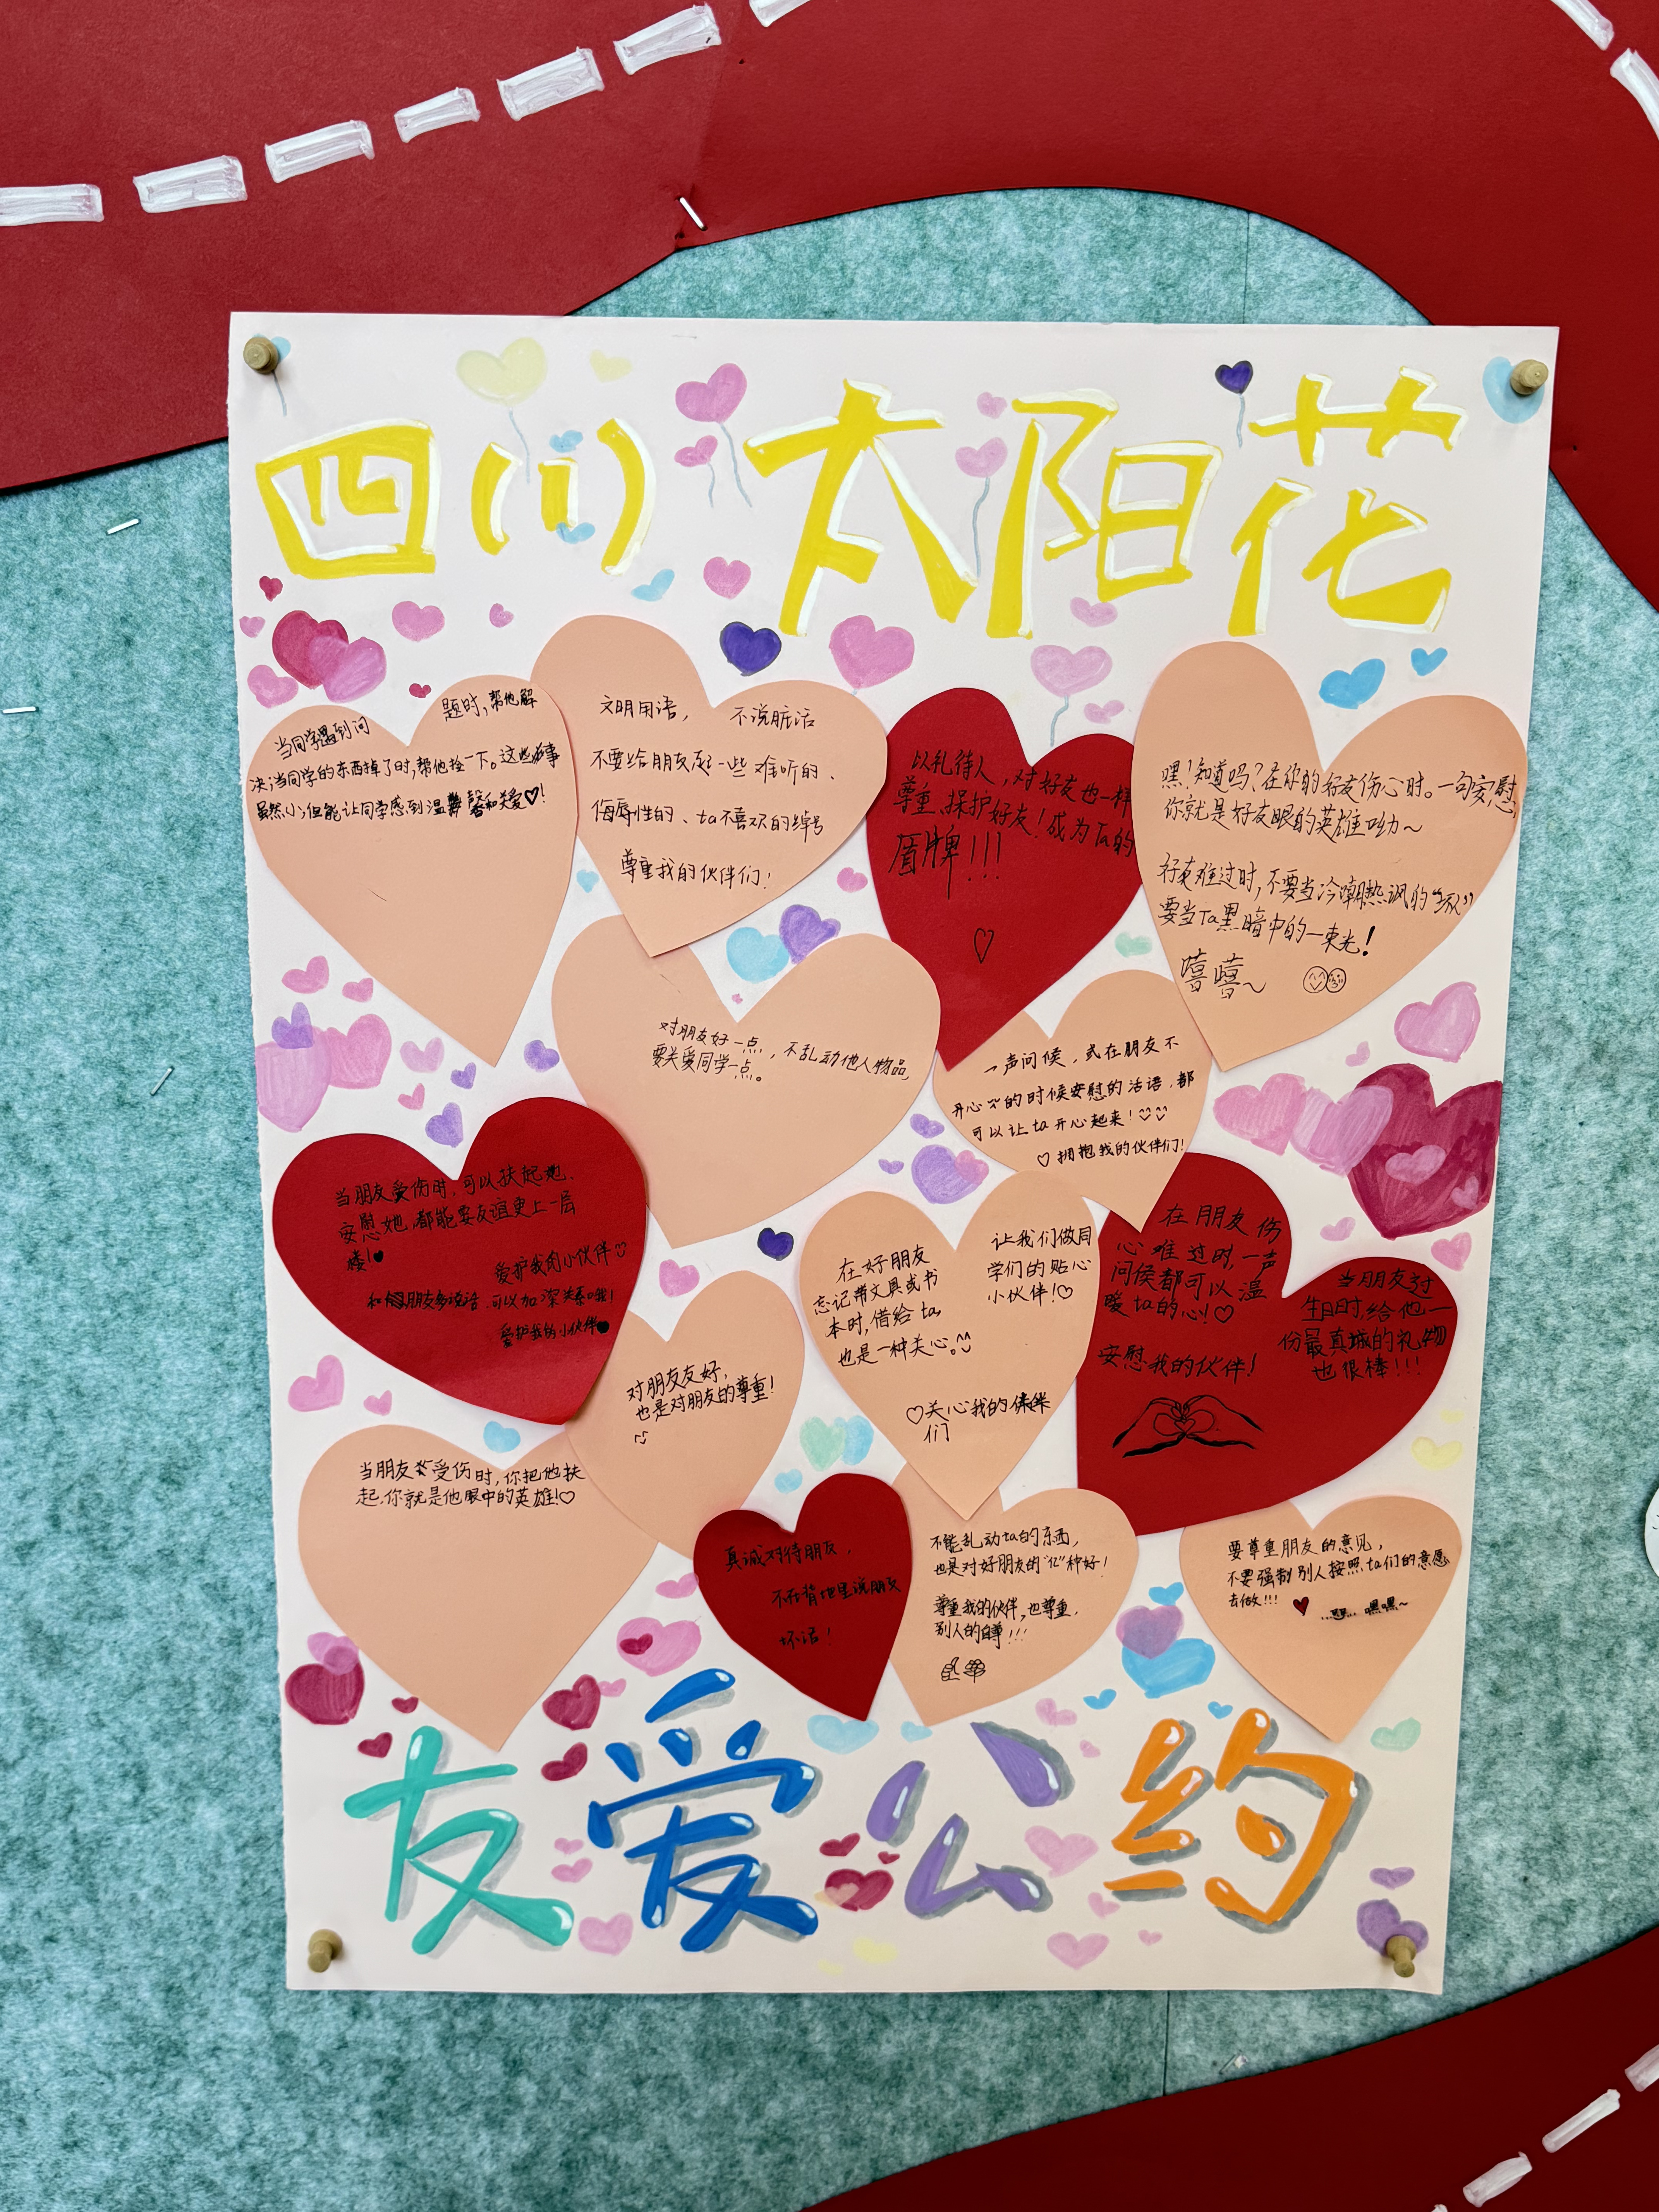 四(1)太阳花
当同学遇到问
题时,帮他解
决;当同学的东西掉了时,帮他捡一下。这些事
虽然小;但能让同学感到温馨和关爱♡!
文明用语, 不说脏话
不要给朋友起一些难听的、
侮辱性的、ta不喜欢的绰号
尊重我的伙伴们!
以礼待人,对好友也一样
尊重、保护好友!成为Ta的
盾牌!!!
嘿!知道吗?在你的好友伤心时。一句安慰,
你就是好友眼的英雄呦~
好友难过时,不要当冷嘲热讽的
要当Ta黑暗中的一束光!
嘻嘻~
对朋友好一点,不乱动他人物品,
要关爱同学一点。
一声问候,或在朋友不
开心的时候安慰的话语,都
可以让ta开心起来!
♡拥抱我的伙伴们!
当朋友受伤时,可以扶起她、
安慰她,都能要友谊更上一层
楼!
爱护我的小伙伴
和朋友多说话,可以加深关系哦!
爱护我的小伙伴
对朋友友好,
也是对朋友的尊重!
在好朋友
忘记带文具或书
本时,借给ta,
也是一种关心。
让我们做同
学们的贴心
小伙伴!♡
♡关心我的伙伴
们
在朋友伤
心难过时,一声
问候都可以温
暖ta的心!♡
安慰我的伙伴!
当朋友过
生日时给他一
份最真城的礼物
也很棒!!!
当朋友受伤时,你把他扶
起,你就是他眼中的英雄!♡
真诚对待朋友,
不在背地里说朋友
坏话!
不能乱动ta的东西,
也是对好朋友的“亿”种好!
尊重我的伙伴,也尊重,
别人的自尊!!!
要尊重朋友的意见,
不要强制别人按照ta们的意愿
去做!!!
嘿嘿~
友爱公约